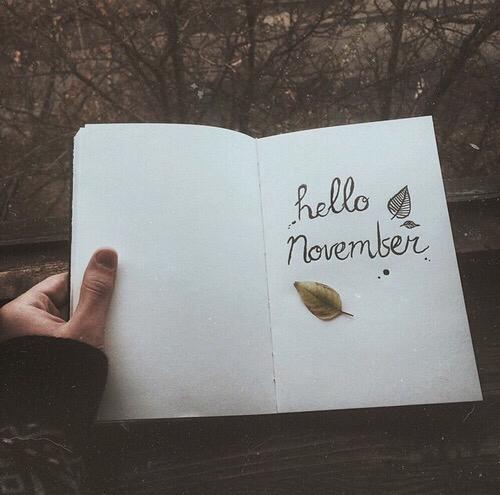 hello
november